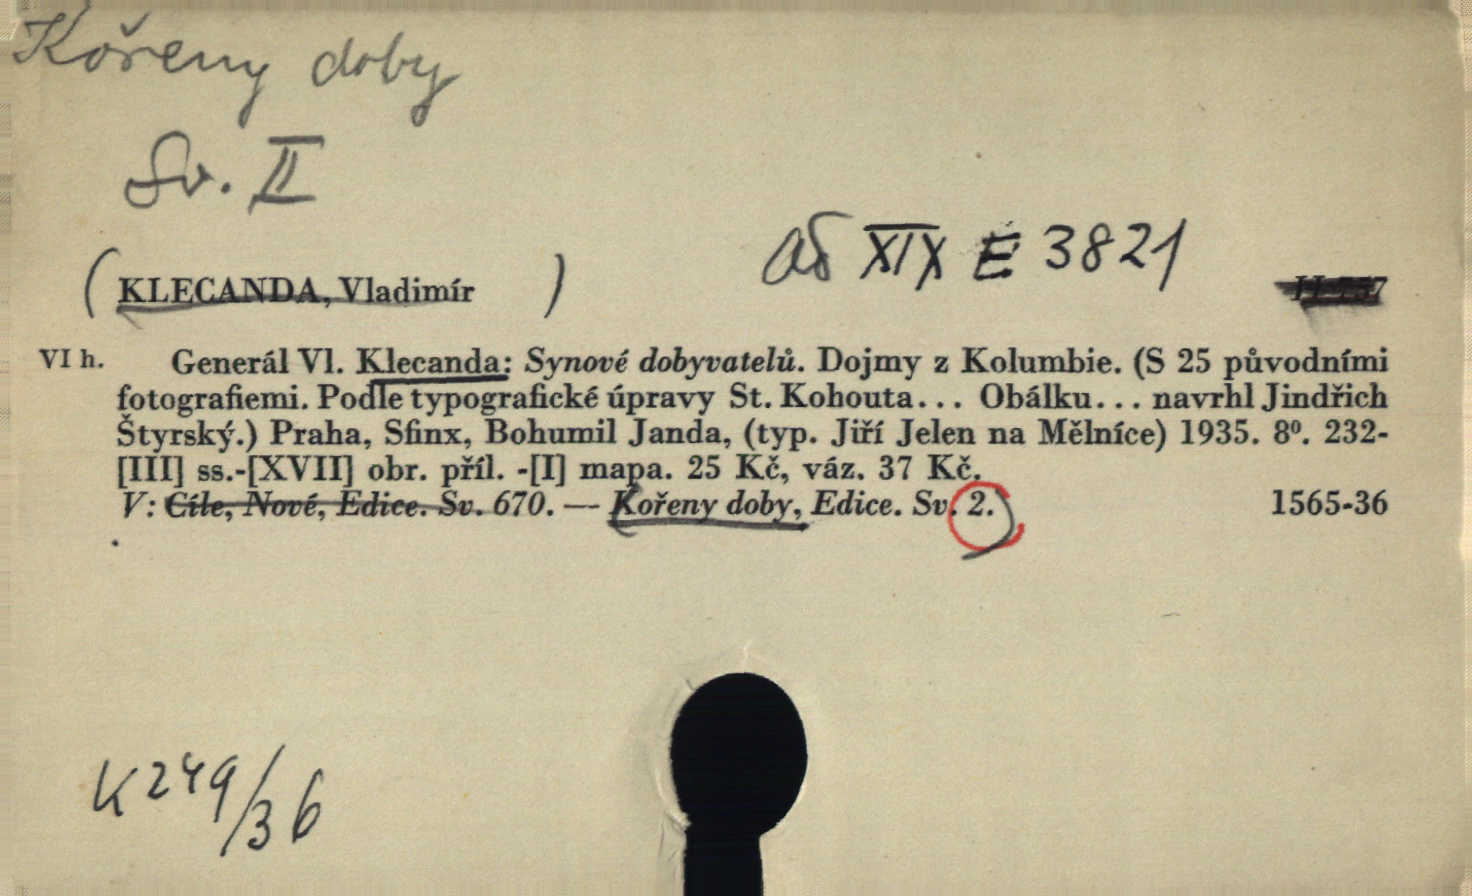 Kořeny doby
Sv. II
aš XIX E 3821
( KLECANDA, Vladimír )
VI h. Generál Vl. Klecanda: Synové dobyvatelů. Dojmy z Kolumbie. (S 25 původními
fotografiemi. Podle typografické úpravy St. Kohouta... Obálku... navrhl Jindřich
Štyrský.) Praha, Sfinx, Bohumil Janda, (typ. Jiří Jelen na Mělníce) 1935. 8⁰. 232-
[III] ss.-[XVII] obr. příl. -[I] mapa. 25 Kč, váz. 37 Kč.
V: Cíle, Nové, Edice. Sv. 670. — Kořeny doby, Edice. Sv. 2. 1565-36
K 249/36